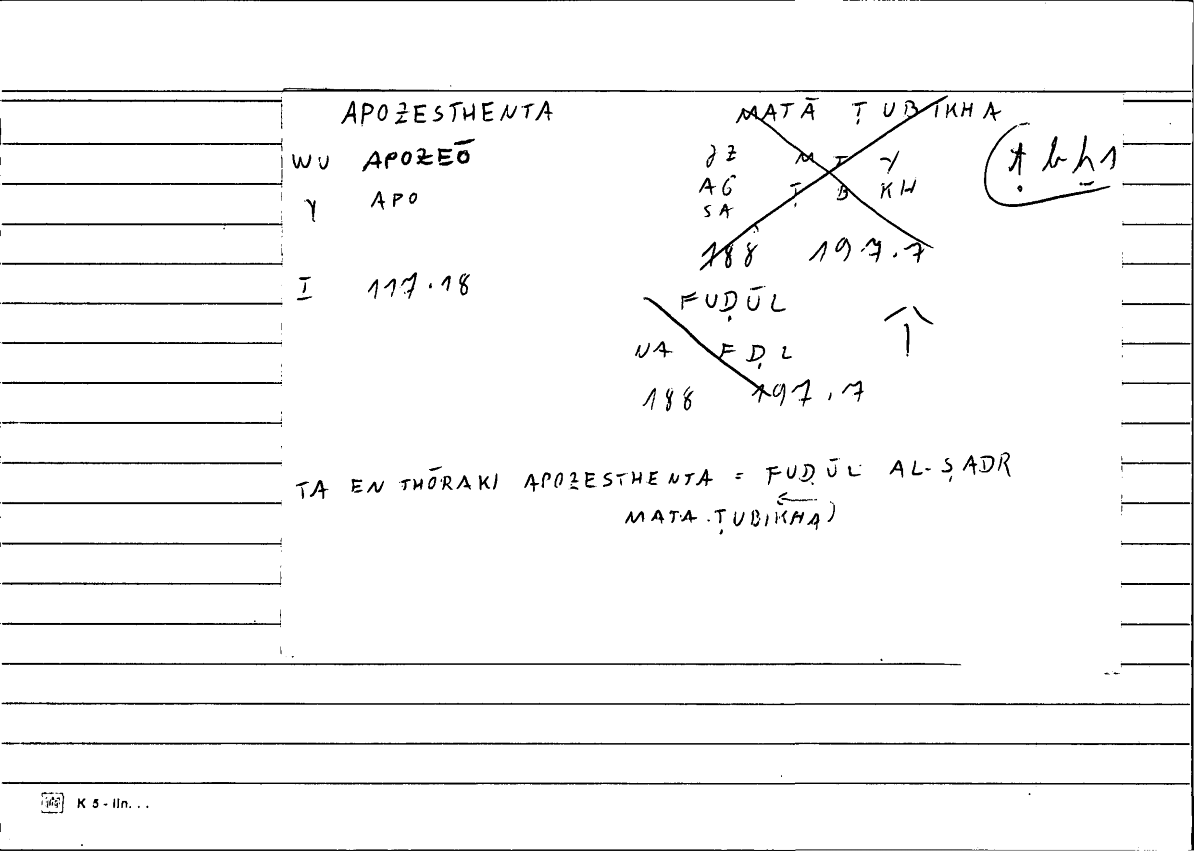 APOZESTHENTA MATĀ ṬUBIKHA
WU APOZEŌ
γ APO AG Ṭ B KH
SA
ṭ b ḫ 1
188 197.7
I 117.18
FUḌŪL
NA F Ḍ L
188 197.7
TA EN THŌRAKI APOZESTHENTA = FUḌŪL AL-ṢADR
MATA ṬUBIKHA)
K 5 - lin...